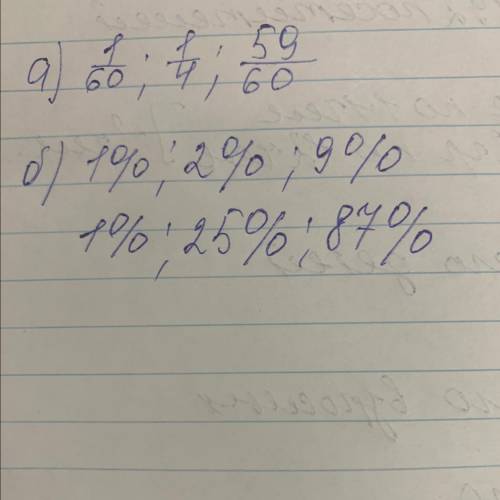 а) 1/60; 1/4; 59/60
б) 1%; 2%; 9%
1%; 25%; 87%